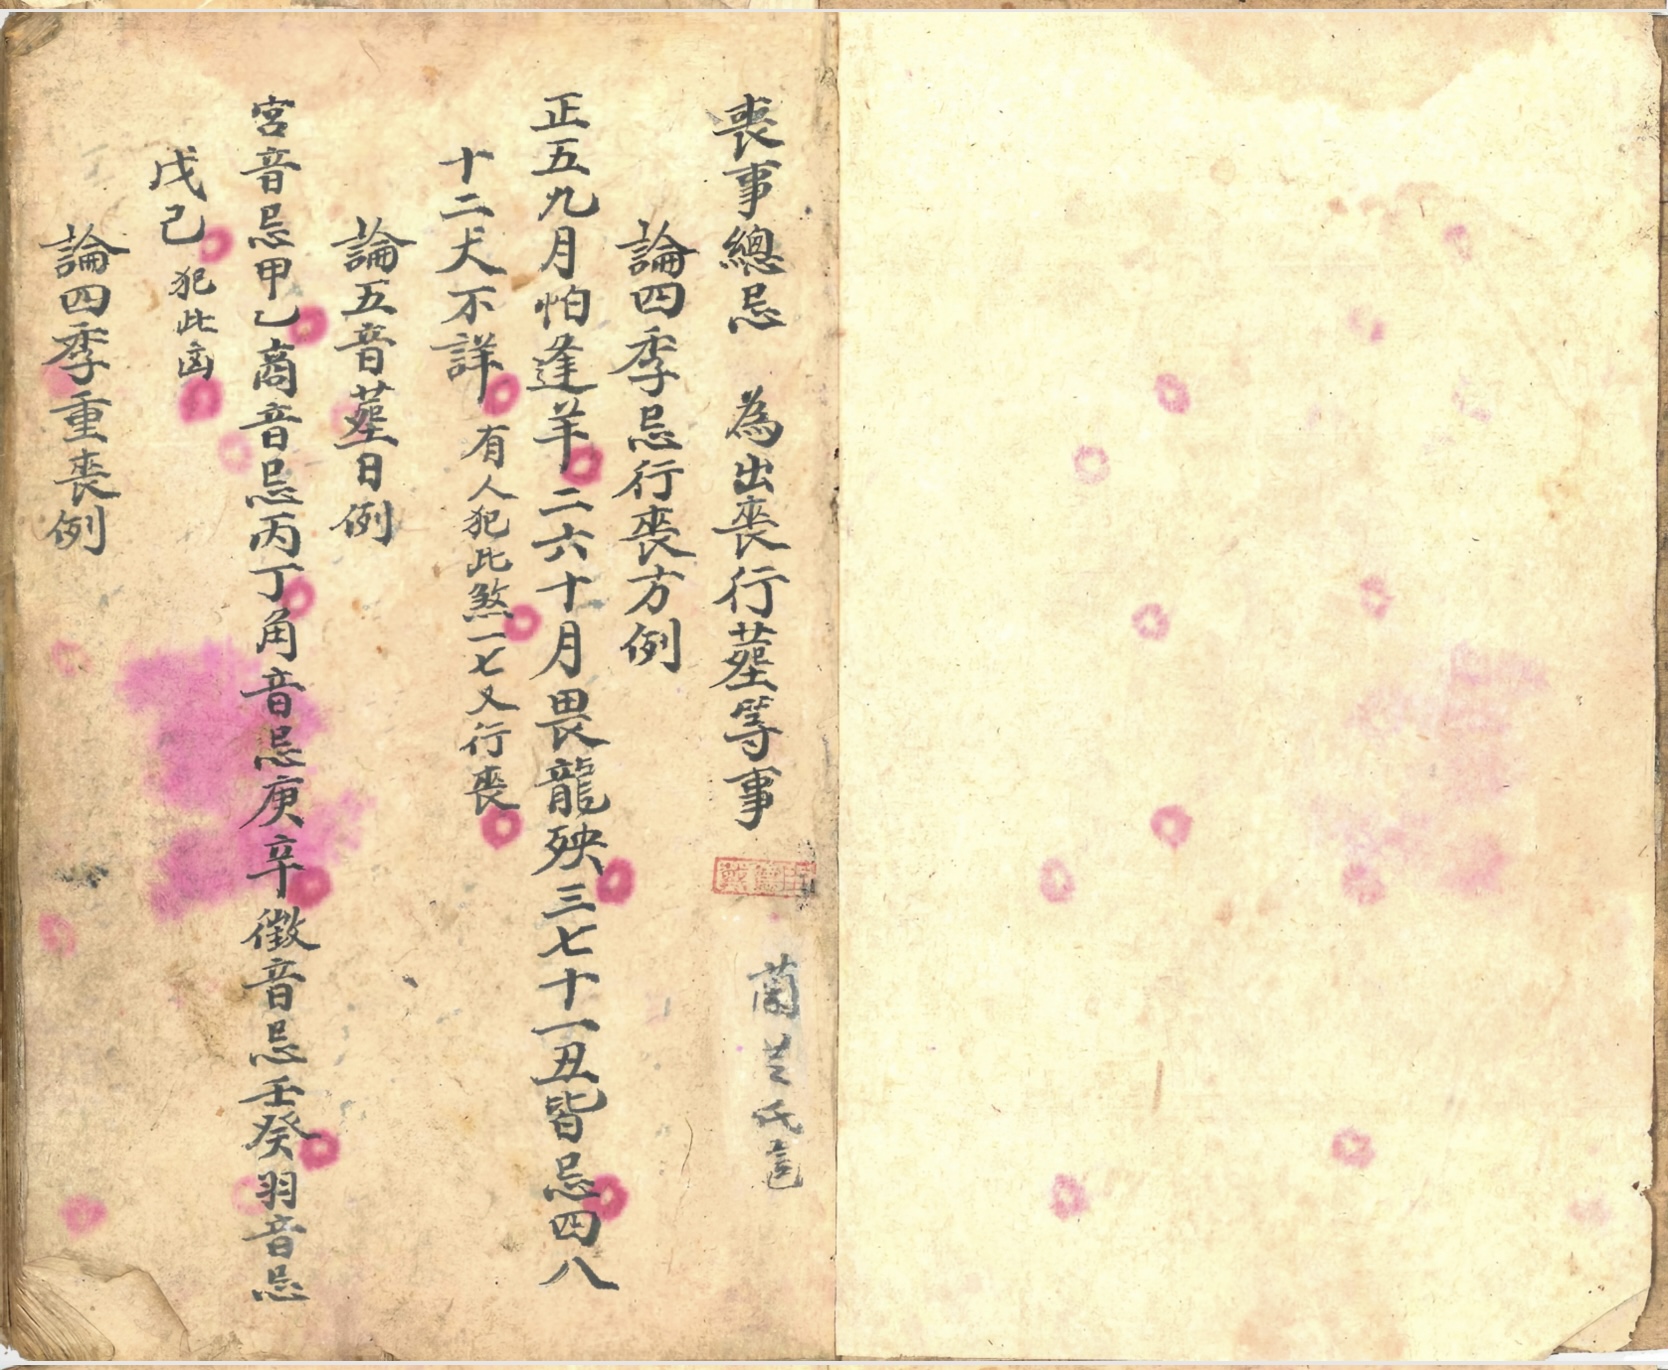 喪事總忌 為出喪行塟等事
蘭芸氏
論四季忌行喪方例
正五九月怕逢羊二六十月畏龍殃三七十一丑皆忌四八
十二犬不詳 有人犯此煞一七又行喪
論五音塟日例
宮音忌甲乙商音忌丙丁角音忌庚辛徵音忌壬癸羽音忌
戊己 犯此凶
論四季重喪例